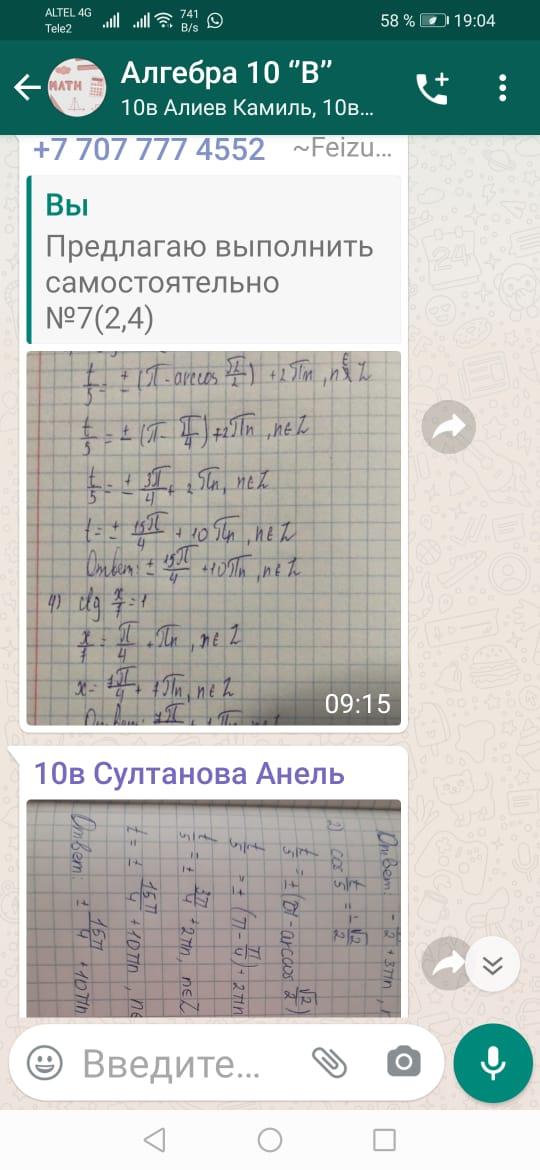 ALTEL 4G
Tele2
741
B/s
58 %
19:04
MATH
Алгебра 10 ‘’В’’
10в Алиев Камиль, 10в...
+7 707 777 4552 ~Feizu...
Вы
Предлагаю выполнить
самостоятельно
№7(2,4)
t/5 = ± (π - arccos √2/2) + 2πn, n ∈ Z
t/5 = ± (π - π/4) + 2πn, n ∈ Z
t/5 = ± 3π/4 + 2πn, n ∈ Z
t = ± 15π/4 + 10πn, n ∈ Z
Ответ: ± 15π/4 + 10πn, n ∈ Z
4) ctg x/7 = 1
x/7 = π/4 + πn, n ∈ Z
x = 7π/4 + 7πn, n ∈ Z
09:15
10в Султанова Анель
Ответ: + 3πn,
2) cos t/5 = - √2/2
t/5 = ± (π - arccos √2/2)
t/5 = ± (π - π/4) + 2πn
t/5 = ± 3π/4 + 2πn, n ∈ Z
t = ± 15π/4 + 10πn, n ∈
Ответ: ± 15π/4 + 10πn
Введите...